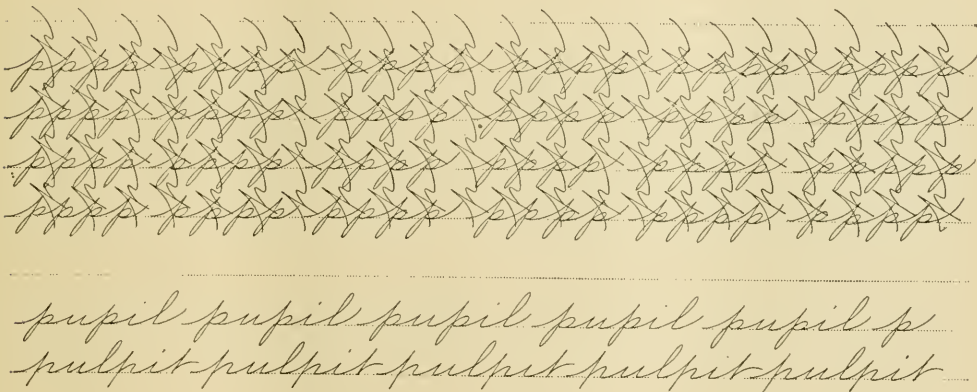 pppp pppp pppp pppp pppp pppp
pppp pppp pppp pppp pppp pppp
pppp pppp pppp pppp pppp pppp
pppp pppp pppp pppp pppp pppp
pupil pupil pupil pupil pupil p
pulpit pulpit pulpit pulpit pulpit